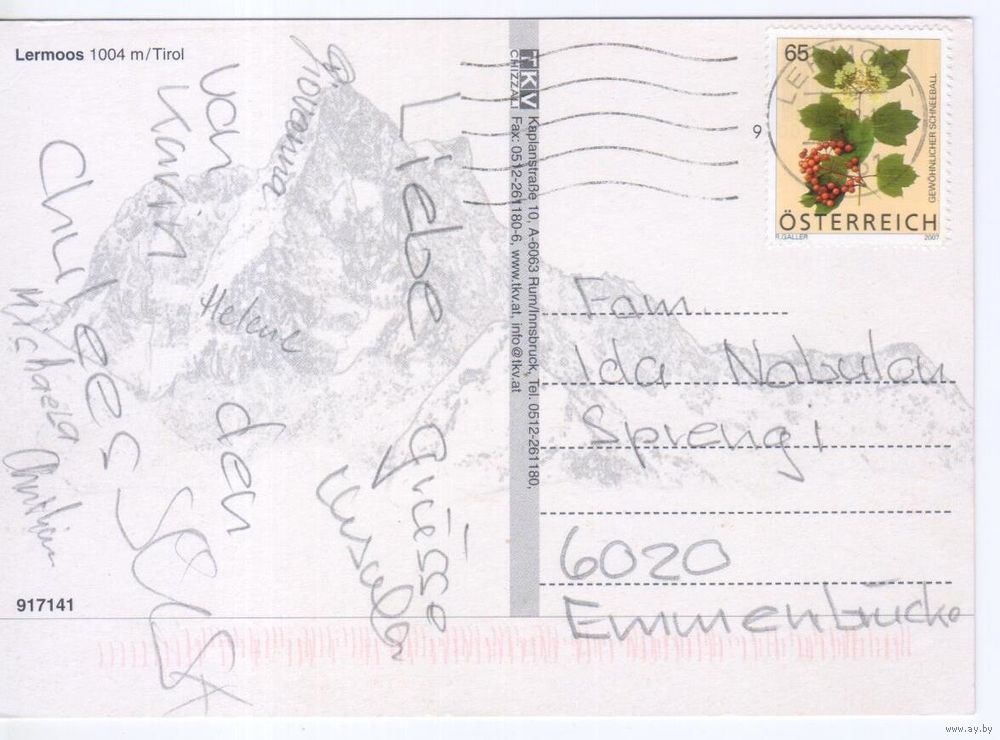 Lermoos 1004 m/Tirol
Liebe Grüsse
von den
Karin
Giovanna
Helene
Michaela
917141
TKV
CHIZZALI
Kaplanstraße 10, A-6063 Rum/Innsbruck, Tel. 0512-261180,
Fax: 0512-261180-6, www.tkv.at, info@tkv.at
9
65
GEWÖHNLICHER SCHNEEBALL
ÖSTERREICH
R.GALLER 2007
Fam.
Ida Nabulon
Sprengi
6020
Emmenbrücke
www.ay.by